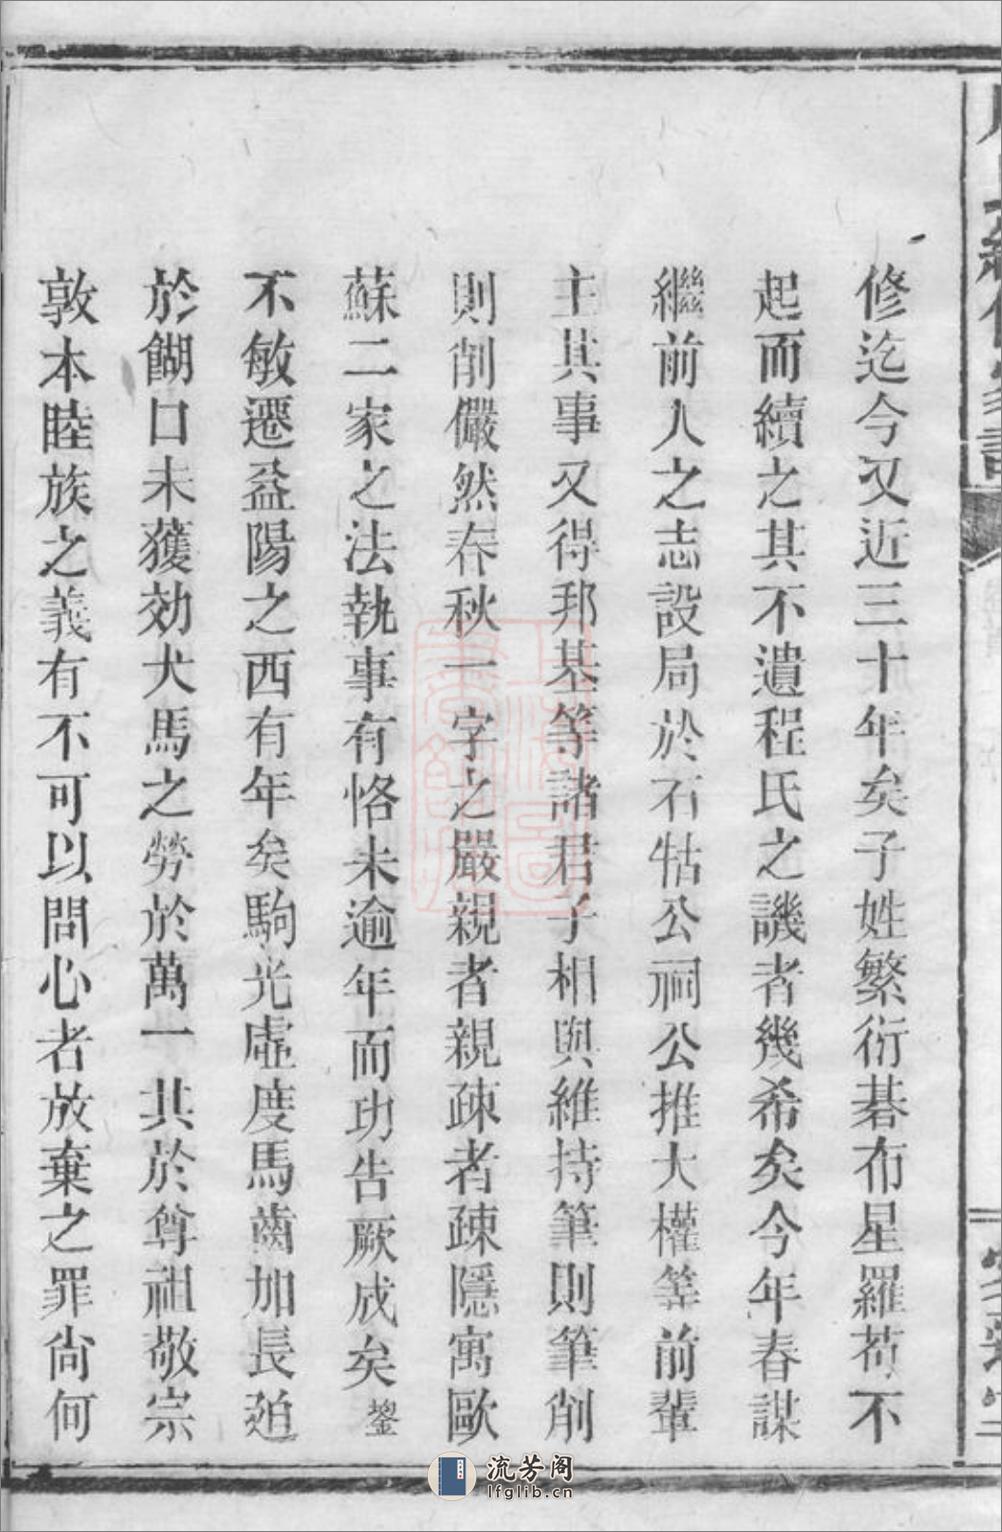 修迄今又近三十年矣子姓繁衍碁布星羅苟不
起而續之其不遺程氏之譏者幾希矣今年春謀
繼前人之志設局於石牯公祠公推大權等前輩
主其事又得邦基等諸君子相與維持筆則筆削
則削儼然春秋一字之嚴親者親疎者疎隱寓歐
蘇二家之法執事有恪未逾年而功告厥成矣鋆
不敏遷益陽之西有年矣駒光虛度馬齒加長廹
於餬口未獲効犬馬之勞於萬一共於尊祖敬宗
敦本睦族之義有不可以問心者放棄之罪尙何
流芳阁
lfglib.cn